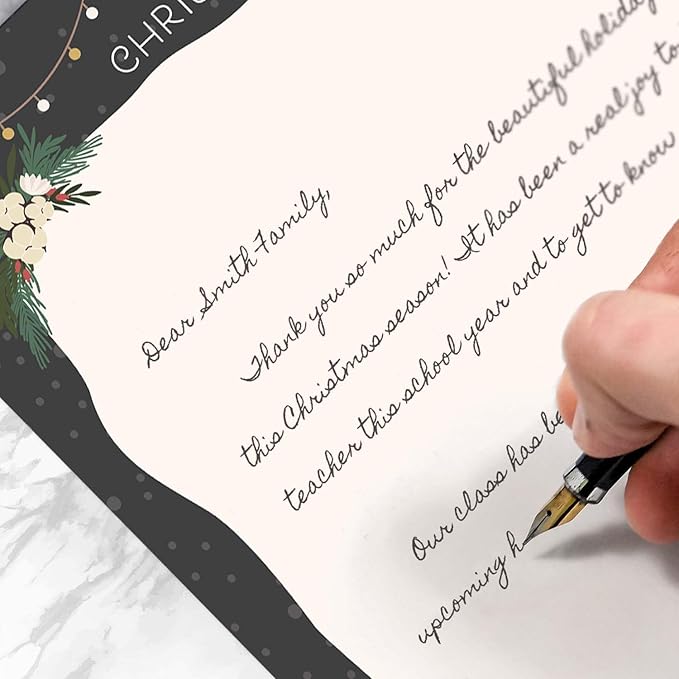 CHRI
Dear Smith Family,
Thank you so much for the beautiful holiday
this Christmas season! It has been a real joy to
teacher this school year and to get to know
Our class has be
upcoming h